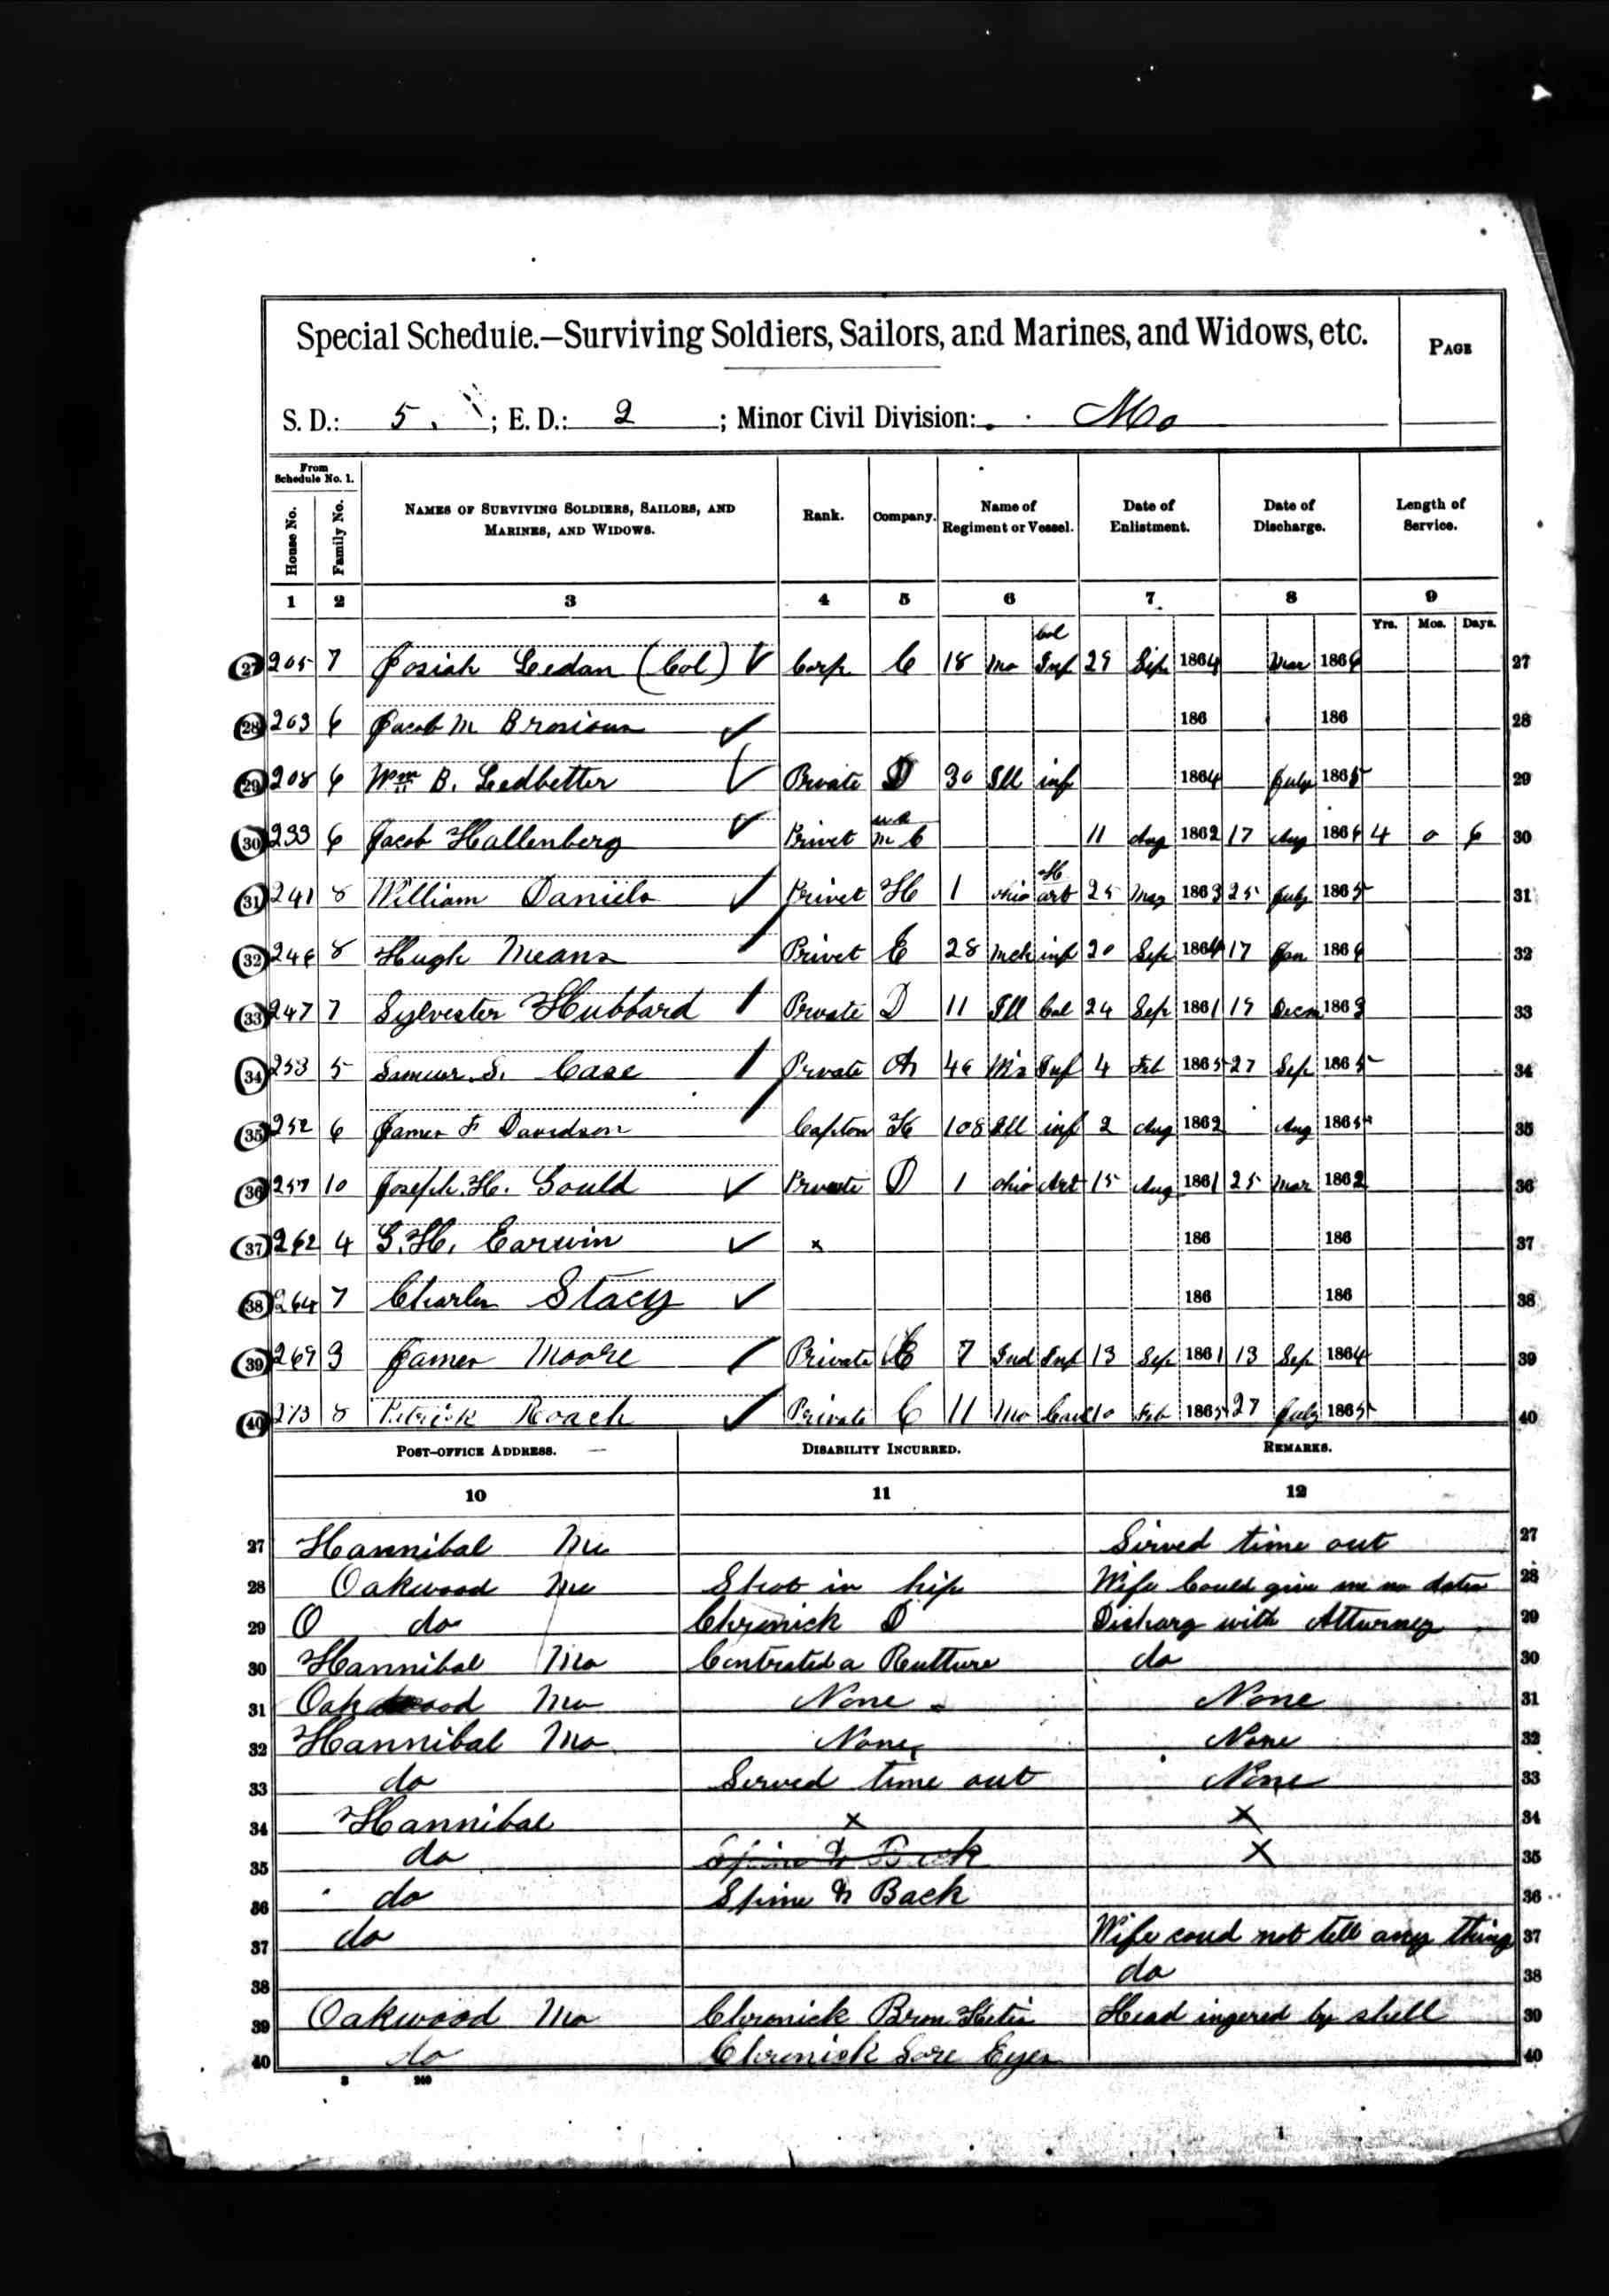 Special Schedule.—Surviving Soldiers, Sailors, and Marines, and Widows, etc.
PAGE
S. D.: 5. ; E. D.: 2 ; Minor Civil Division: Mo
From Schedule No. 1.
House No.
Family No.
NAMES OF SURVIVING SOLDIERS, SAILORS, AND MARINES, AND WIDOWS.
Rank.
Company.
Name of Regiment or Vessel.
Date of Enlistment.
Date of Discharge.
Length of Service.
1 2 3 4 5 6 7 8 9
Yrs. Mos. Days.
27 205 7 Josiah Ledan (Col) Corp C 18 Mo Col Inf 29 Sep 1864 Mar 1866 27
28 203 6 Jacob M 186 186 28
29 208 6 Wm B. Ledbetter Private D 30 Ill inf 1864 July 1865 29
30 233 6 Jacob Hallenberg Privet M C 11 Aug 1862 17 Aug 1866 4 0 6 30
31 241 8 William Daniels Privet H 1 ohio H art 25 May 1863 25 July 1865 31
32 246 8 Hugh Means Privet E 28 Mch inf 20 Sep 1864 17 Jan 1866 32
33 247 7 Sylvester Hubbard Private D 11 Ill Cal 24 Sep 1861 19 Decm 1863 33
34 253 5 S. Case Private A 46 Wis Inf 4 Feb 1865 27 Sep 1865 34
35 252 6 James F Davidson Capton K 108 Ill inf 2 Aug 1862 Aug 1865 35
36 257 10 Joseph. H. Gould Private D 1 ohio Art 15 Aug 1861 25 Mar 1862 36
37 262 4 G. H. Earwin x 186 186 37
38 264 7 Charles Stacy 186 186 38
39 269 3 James Moore Private E 7 Ind Inf 13 Sep 1861 13 Sep 1864 39
40 273 8 Patrick Roach Private C 11 Mo Cav 10 Feb 1865 27 July 1865 40
POST-OFFICE ADDRESS.
DISABILITY INCURRED.
REMARKS.
10 11 12
27 Hannibal Mo Sirved time out 27
28 Oakwood Mo Shot in hip Wife Could give me no dates 28
29 O do Chronick D Discharg with Atturney 29
30 Hannibal Mo Contrated a Rutture do 30
31 Oakwood Mo None None 31
32 Hannibal Mo None None 32
33 do Served time out None 33
34 Hannibal x x 34
35 do Spine & Back x 35
36 do Spine & Back 36
37 do Wife coud not tell any thing 37
38 do 38
39 Oakwood Mo Chronick Bronkitis Head ingered by shell 39
40 do Chronick Sore Eyes 40